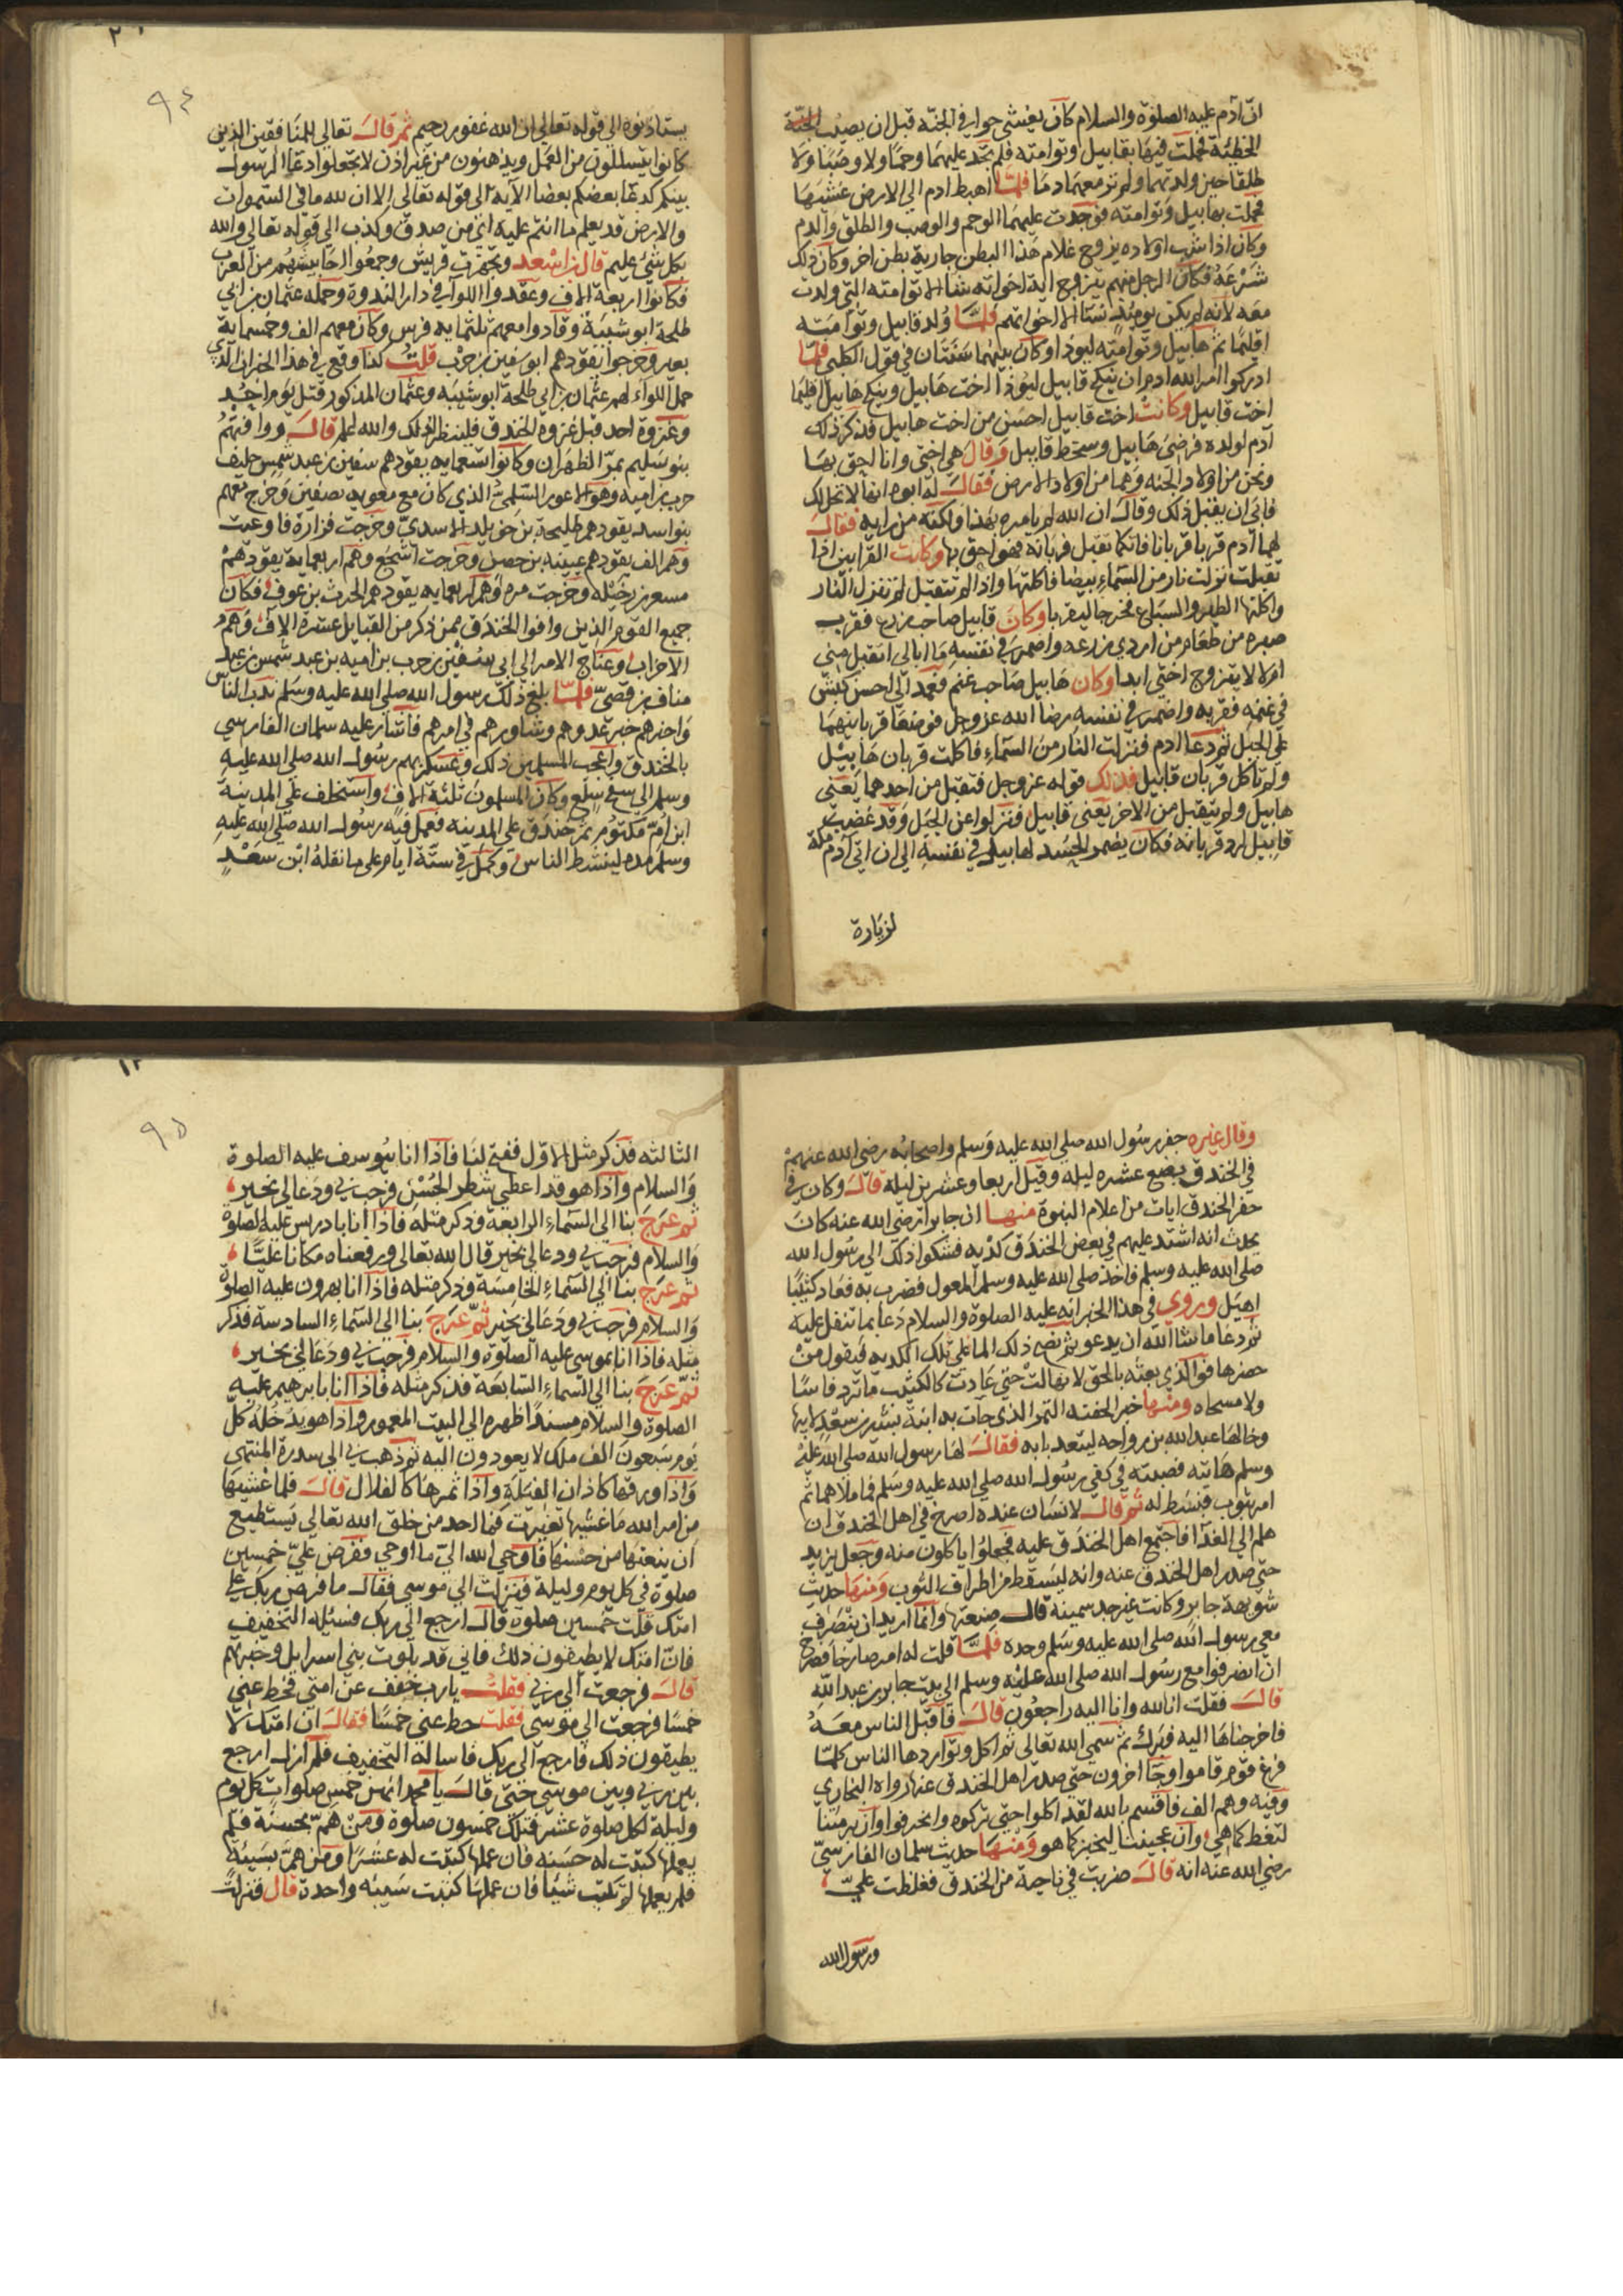 انّ آدم عليه الصلوة والسلام كان يغشى حوا في الجنة قبل ان يصيب الجنة
الخطيئة فحملت فيها بقابيل وتوامته فلم تجد عليهما وحما ولا وصبا ولا
طلقا حين ولدتهما ولم تر معهما دما فلما اهبط ادم الي الارض غشيها
فحملت بهابيل وتوامته فوجدت عليهما الوحم والوصب والطلق والدم
وكان اذا شب اولاده يزوج غلام هذا البطن جارية بطن اخر وكان ذلك
شرعة فكان الرجل منهم يتزوج اية اخواته شا الا توامته التي ولدت
معه لانه لم يكن يومئذ نسا الا اخواتهم فلما ولد قابيل وتوامته
اقليما ثم هابيل وتوامته ليوذا وكان بينهما سنتان في قول الكلبي فلما
ادركوا امر الله ادم ان ينكح قابيل ليوذا اخت هابيل وينكح هابيل اقليما
اخت قابيل وكانت اخت قابيل احسن من اخت هابيل فذكر ذلك
آدم لولده فرضى هابيل وسخط قابيل وقال هي اختي وانا احق بها
ونحن من اولاد الجنه وهما من اولاد الارض فقال له ابوه انها لا تحل لك
فابي ان يقبل ذلك وقال ان الله لم يامره بهذا ولكنه من رايه فقال
لهما آدم قربا قربانا فايكما تقبل قربانه فهو احق بها وكانت القرابين اذا
تقبلت نزلت نار من السماء بيضا فاكلتها واذا لم تتقبل لم تنزل النار
واكلتها الطير والسباع فخرجا ليقربا وكان قابيل صاحب زرع فقرب
صبره من طعام من اردي زرعه واضمر في نفسه ما ابالي اتقبل مني
ام لا لا يتزوج اختي ابدا وكان هابيل صاحب غنم فعمد الي احسن كبش
في غنمه فقربه واضمر في نفسه رضا الله عز وجل فوضعا قربانيهما
على الجبل ثم دعا ادم فنزلت النار من السماء فاكلت قربان هابيل
ولم تاكل قربان قابيل فذلك قوله عز وجل فتقبل من احدهما يعنى
هابيل ولم يتقبل من الاخر يعنى قابيل فنزلوا عن الجبل وقد غضب
قابيل لرد قربانه فكان يضمر الحسد لهابيل في نفسه الي ان اتي آدم مكة
لزيارة
٩٤
يستاذنوه الي قوله تعالي ان الله غفور رحيم ثم قال تعالي للمنافقين الذين
كانوا يتسللون من العمل ويذهبون من غير اذن لا تجعلوا دعا الرسول
بينكم كدعا بعضكم بعضا الآيه الي قوله تعالى الا ان لله ما في السموات
والارض قد يعلم ما انتم عليه اي من صدق وكذب الي قوله تعالي والله
بكل شئ عليم قال بن سعد وتجهزت قريش وجمعوا احابيشهم من العرب
فكانوا اربعة الاف وعقدوا اللوآ في دار الندوة وحمله عثمان بن ابي
طلحة ابو شيبة وقادوا معهم ثلثمايه فرس وكان معهم الف وخمسماية
بعير وخرجوا يقودهم ابو سفين بن حرب قلت لنا وقع في هذا الخبر ان الذي
حمل اللواء لهم عثمان بن ابي طلحة ابو شيبه وعثمان المذكور قتل يوم احد
وغزوة احد قبل غزوة الخندق فلينظر لذلك والله اعلم قال ووافتهم
بنو سليم بمر الظهران وكانوا سبعمايه يقودهم سفين بن عبد شمس حليف
حرب بن اميه وهو ابو الاعور السلمي الذي كان مع معويه بصفين وخرج معهم
بنو اسد يقودهم طليحة بن خويلد الاسدي وخرجت فزارة فاوعبت
وهم الف يقودهم عيينه بن حصن وخرجت اشجع وهم اربعماية يقودهم
مسعر بن رخيله وخرجت مره وهم اربعمايه يقودهم الحرث بن عوف فكان
جميع القوم الذين وافوا الخندق ممن ذكر من القبايل عشرة الاف وهم
الاحزاب وعناج الامر الي ابي سفين بن حرب بن اميه بن عبد شمس بن عبد
مناف بن قصي فلما بلغ ذلك رسول الله صلى الله عليه وسلم ندب الناس
واخبرهم خبر عدوهم وشاورهم في امرهم فاشار عليه سلمان الفارسي
بالخندق واعجب المسلمين ذلك وعسكر بهم رسول الله صلى الله عليه
وسلم الي سفح سلع وكان المسلمون ثلثة الاف واستخلف علي المدينة
ابن ام مكتوم ثم خندق على المدينه فعمل فيه رسول الله صلى الله عليه
وسلم بيده لينشط الناس وكمل في ستة ايام على ما نقله ابن سعد
وقال غيره حفر رسول الله صلى الله عليه وسلم واصحابه رضي الله عنهم
في الخندق بضع عشره ليله وقيل اربعا وعشرين ليلة قال وكان في
حفر الخندق ايات من اعلام النبوة منها ان جابرا رضي الله عنه كان
يحدث انه اشتد عليهم في بعض الخندق كديه فشكوا ذلك الي رسول الله
صلى الله عليه وسلم فاخذ صلى الله عليه وسلم المعول فضرب به فعاد كثيبا
اهيل وروي في هذا الخبر انه عليه الصلوة والسلام دعا بما تفل عليه
ثم دعا ما شا الله ان يدعو ثم نضح ذلك الما على تلك الكديه فيقول من
حضرها فوالذي بعثه بالحق لا نهالت حتي عادت كالكثيب ما ترد فاسا
ولا مسحاه ومنها خبر الحفنه التمر الذي جات به ابنة بشير بن سعد لابيها
وخالها عبد الله بن رواحه ليتغديا به فقال لها رسول الله صلى الله عليه
وسلم هاتيه فصبته في كفي رسول الله صلى الله عليه وسلم فما ملاهما ثم
امر بثوب فبسط له ثم قال لانسان عنده اصرخ في اهل الخندق ان
هلم الي الغدآ فاجتمع اهل الخندق عليه فجعلوا ياكلون منه وجعل يزيد
حتي صدر اهل الخندق عنه وانه ليسقط من اطراف الثوب ومنها حديث
شويهة جابر وكانت غير جد سمينة قال صنعتها وانما اريد ان ينصرف
معي رسول الله صلى الله عليه وسلم وحده فلما قلت له امر صارخا فصرخ
ان انصرفوا مع رسول الله صلى الله عليه وسلم الي بيت جابر بن عبد الله
قال فقلت انا لله وانا اليه راجعون قال فاقبل الناس معه
فاخرجناها اليه فبرك ثم سمي الله تعالي ثم اكل وتواردها الناس كلما
فرغ قوم قاموا وجا اخرون حتي صدر اهل الخندق عنها رواه البخاري
وفيه وهم الف فاقسم بالله لقد اكلوا حتي تركوه وانحرفوا وان برمتنا
لتغط كما هي وان عجيننا ليخبز كما هو ومنها حديث سلمان الفارسي
رضي الله عنه انه قال ضربت في ناحية من الخندق فغلظت علي
ورسول الله
٩٥
الثالثه فذكر مثل الاول ففتح لنا فاذا انا بيوسف عليه الصلوة
والسلام واذا هو قد اعطي شطر الحسن فرحب بي ودعا لي بخير
ثم عرج بنا الي السماء الرابعة وذكر مثله فاذا انا بادريس عليه الصلوة
والسلام فرحب بي ودعا لي بخير قال الله تعالى ورفعناه مكانا عليا
ثم عرج بنا الي السماء الخامسة وذكر مثله فاذا انا بهرون عليه الصلوة
والسلام فرحب بي ودعا لي بخير ثم عرج بنا الي السماء السادسة فذكر
مثله فاذا انا بموسى عليه الصلوة والسلام فرحب بي ودعا لي بخير
ثم عرج بنا الي السماء السابعة فذكر مثله فاذا انا بابرهيم عليه
الصلوة والسلام مسندا ظهره الي البيت المعمور واذا هو يدخله كل
يوم سبعون الف ملك لا يعودون اليه ثم ذهب بي الي سدرة المنتهي
واذا ورقها كاذان الفيلة واذا ثمرها كالقلال قال فلما غشيها
من امر الله ما غشيها تغيرت فما احد من خلق الله تعالي يستطيع
ان ينعتها من حسنها فاوحي الله الي ما اوحي ففرض علي خمسين
صلوة في كل يوم وليلة فنزلت الي موسي فقال ما فرض ربك على
امتك قلت خمسين صلوة قال ارجع الي ربك فسئله التخفيف
فان امتك لا يطيقون ذلك فاني قد بلوت بني اسرايل وخبرتهم
قال فرجعت الي ربي فقلت يارب خفف عن امتي فحط عني
خمسا فرجعت الي موسي فقلت حط عني خمسا فقال ان امتك لا
يطيقون ذلك فارجع الي ربك فاساله التخفيف فلم ازل ارجع
بين ربي وبين موسي حتي قال يا محمد انهن خمس صلوات كل يوم
وليلة لكل صلوة عشر فتلك خمسون صلوة ومن هم بحسنة فلم
يعملها كتبت له حسنه فان عملها كتبت له عشرا ومن هم بسيئة
فلم يعملها لم تكتب شيا فان عملها كتبت سيئه واحدة قال فنزلت